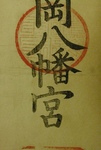 岡八幡宮